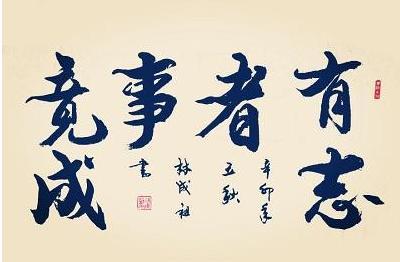 有志
者
事
竟成
辛卯年
林成祖
書